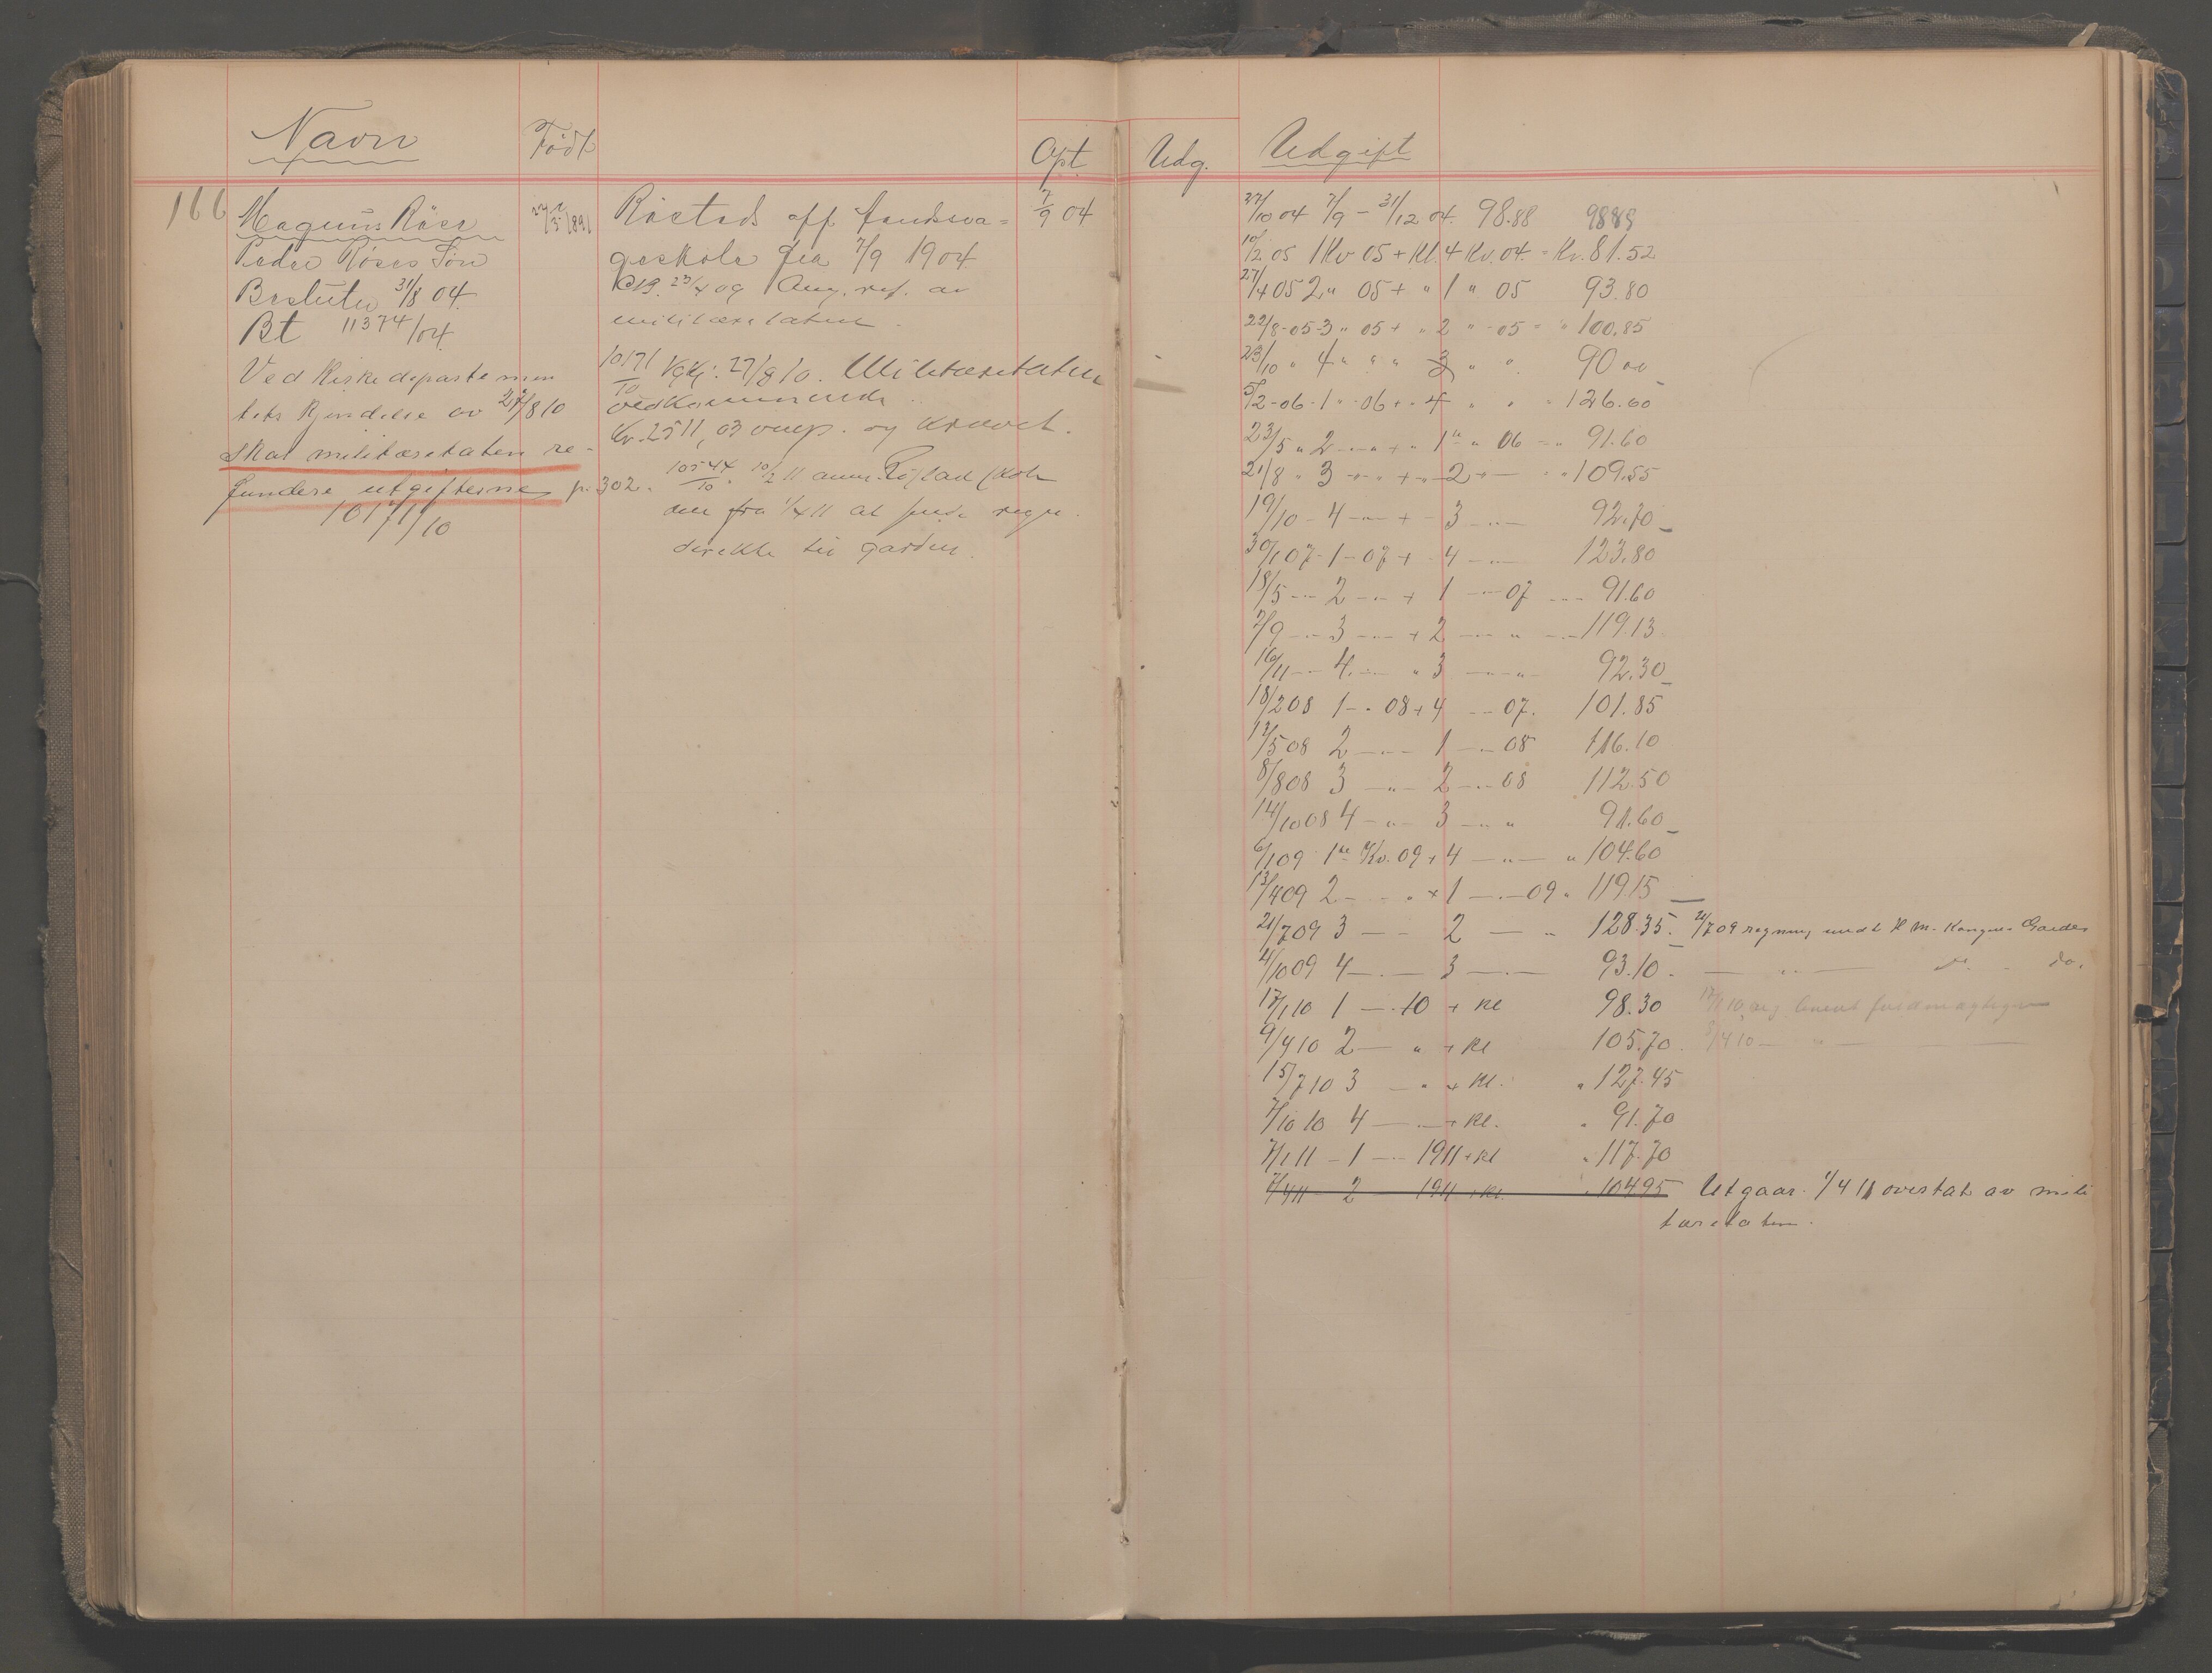 Navn
Født
Opt.
Udg.
Udgift
166
Magnus Röse
Peder Röses Søn
Beslutn. 31/8 04
Bt 11374/04
Ved Kirkedepartemen
tets Kjendelse av 27/8 10
skal militæretaten re-
fundere utgifterne p. 302.
10171/10
Röstads off. Aandssva=
geskole fra 7/9 1904
7/9 04
Ang. ref. av
militæretaten.
10171/10 Kgkj. 27/8 10. Militæretaten
vedkommende.
Kr. 2511,03 opp. og krævet.
10544/10. 10/2 11 anm. Röstad skole
om fra 1/4 11 at sende regn.
direkte til garden.
27/10 04 7/9 - 31/12 04. 98.88 9889
10/2 05 1 Kv 05 + Kl. 4 Kv. 04. = Kr. 81.52
27/4 05 2 " 05 + " 1 " 05 93.80
22/8-05-3 " 05 + " 2 " -05 = " 100.85
23/10 " 4 " " " 3 " " 90 00
5/2-06-1 " -06 + - 4 " " " 126.60
23/5 " 2 - " - " + " 1 " " 06 = " 91.60
21/8 " 3 - " - " + - " - 2 - " - " 109.55
19/10 - 4 - " - + - 3 - " - 92.70
30/1 07 - 1 - 07 + - 4 - " - 123.80
18/5 - " - 2 - " - + 1 - " - 07 - " - 91.60
7/9 - " - 3 - " - + 2 - " - " - " - 119.13
16/11 - " - 4 - " - " 3 - " - " - 92.30
18/2 08 1 - " 08 + 4 - " 07. 101.85
12/5 08 2 - " - 1 - " - 08 116.10
8/8 08 3 - " - 2 - " - 08 112.50
14/10 08 4 - " - 3 - " " 91.60
6/1 09 1ste Kv. 09 + 4 - " - " 104.60
13/4 09 2 - " - " + 1 - " - 09 " 119.15
21/7 09 3 - - 2 - " 128.35. 21/7 09 regning sendt H. M. Kongens Garde
4/10 09 4 - " - 3 - " - 93.10. - " - do.
17/1 10 1 - " - 10 + Kl 98.30 17/1 10 reg. sendt fuldmægtigen
9/4 10 2 - " + Kl 105.70. 9/4 10 - " -
15/7 10 3 - " + Kl. " 127.45
7/10 10 4 - " - + Kl. " 91.70
7/1 11 - 1 - " - 1911 + Kl " 117.70
7/4 11 - 2 - 1911 + Kl. " 104.95 Utgaar. 1/4 11 overtat av mili
tæretaten.